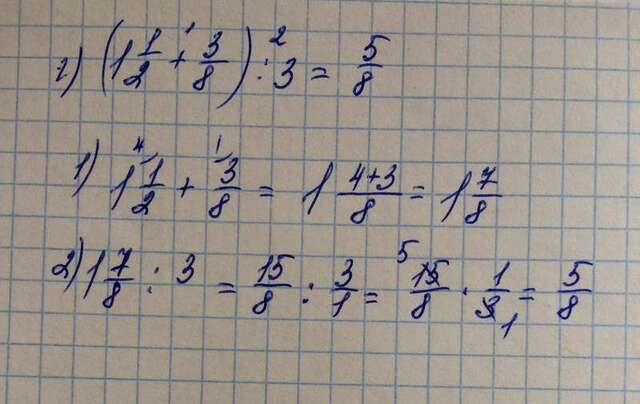 г) (1 1/2 + 3/8) : 3 = 5/8
1) 1 1/2 + 3/8 = 1 4+3/8 = 1 7/8
2) 1 7/8 : 3 = 15/8 : 3/1 = 15/8 · 1/3 = 5/8